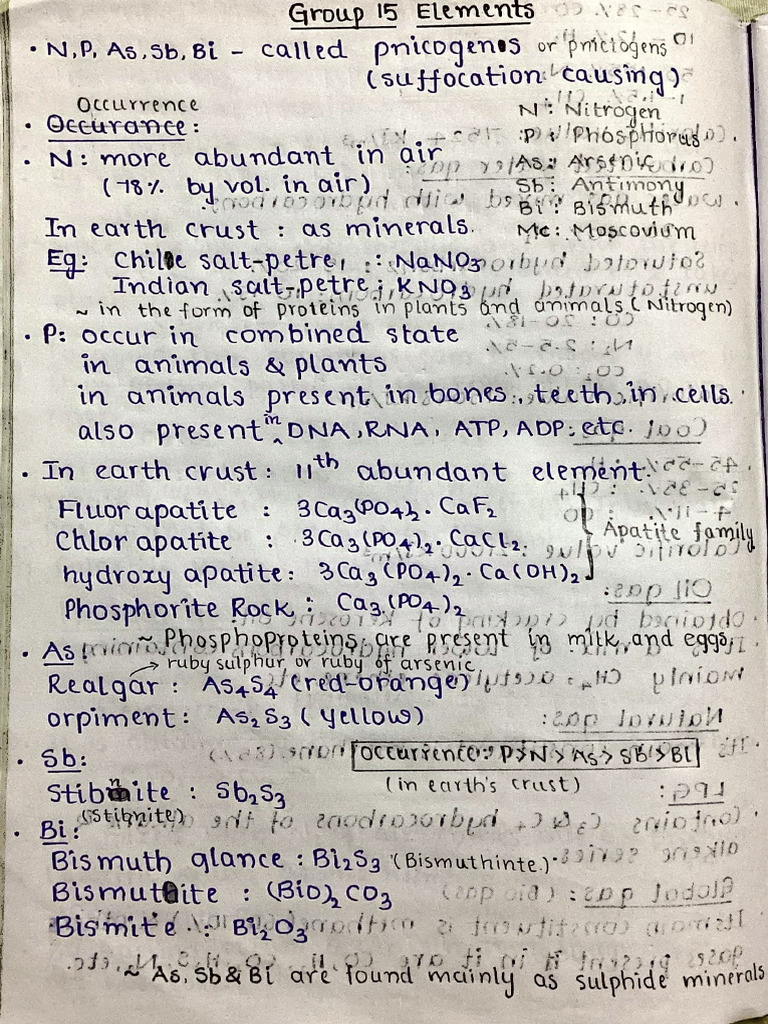 Group 15 Elements
• N, P, As, Sb, Bi - called pnicogens or pnictogens
(suffocation causing)
Occurrence
• Occurance:
N: Nitrogen
P: Phosphorus
As: Arsenic
Sb: Antimony
Bi: Bismuth
Mc: Moscovium
• N: more abundant in air
(78% by vol. in air)
In earth crust : as minerals.
Eg: Chile salt-petre, : NaNO3
Indian salt-petre ; KNO3
~ in the form of proteins in plants and animals (Nitrogen)
• P: occur in combined state
in animals & plants
in animals present in bones, teeth, in cells.
also present in DNA, RNA, ATP, ADP, etc.
• In earth crust: 11th abundant element.
Fluorapatite : 3Ca3(PO4)2 · CaF2
Chlorapatite : 3Ca3(PO4)2 · CaCl2
hydroxy apatite: 3Ca3(PO4)2 · Ca(OH)2
Apatite family
Phosphorite Rock : Ca3(PO4)2
~ Phosphoproteins are present in milk and eggs
• As:
→ ruby sulphur or ruby of arsenic
Realgar : As4S4 (red-orange)
orpiment: As2S3 (yellow)
• Sb:
Occurrence: P>N>As>Sb>Bi
(in earth's crust)
Stibnite : Sb2S3
(Stibnite)
• Bi:
Bismuth glance : Bi2S3 (Bismuthinte)
Bismuthite : (BiO)2CO3
Bismite : Bi2O3
~ As, Sb & Bi are found mainly as sulphide minerals